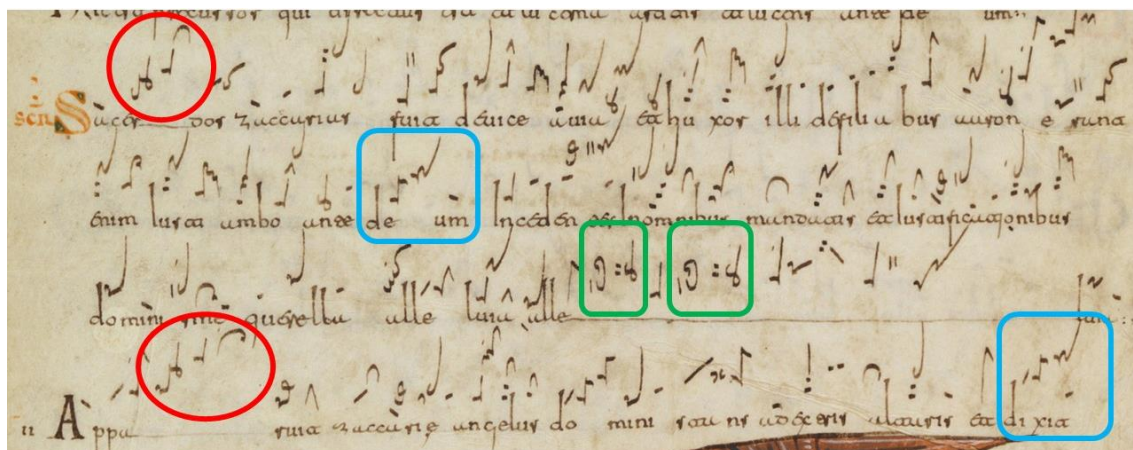 qui ante de um
Sacer dos zaccarias fuit de uice auia et hu xor illi de filia bus aaron e runt
enim iusti ambo ante de um Inceden tes In omnibus mandatis et iustificationibus
domini sine querella alle luia alle luia:
II Appa ruit zaccarie angelus do mini stans ad altaris et dixit